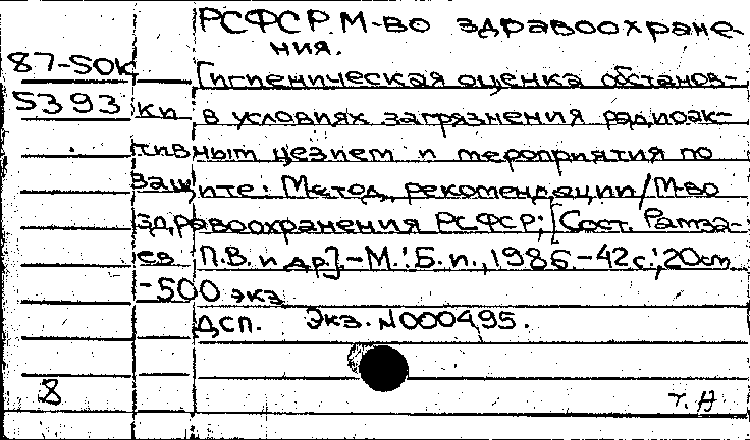 РСФСР. М-во здравоохране-
ния.
87-50к
Гигиеническая оценка обстанов-
5393 ки в условиях загрязнения радиоак-
тивным цезием и мероприятия по
защите: Метод. рекомендации/М-во
здравоохранения РСФСР; [Сост. Рамза-
ев П.В. и др.].-М.: Б.и., 1986.-42с.; 20см
-500 экз
ДСП. Экз. N000495.
8 т. н